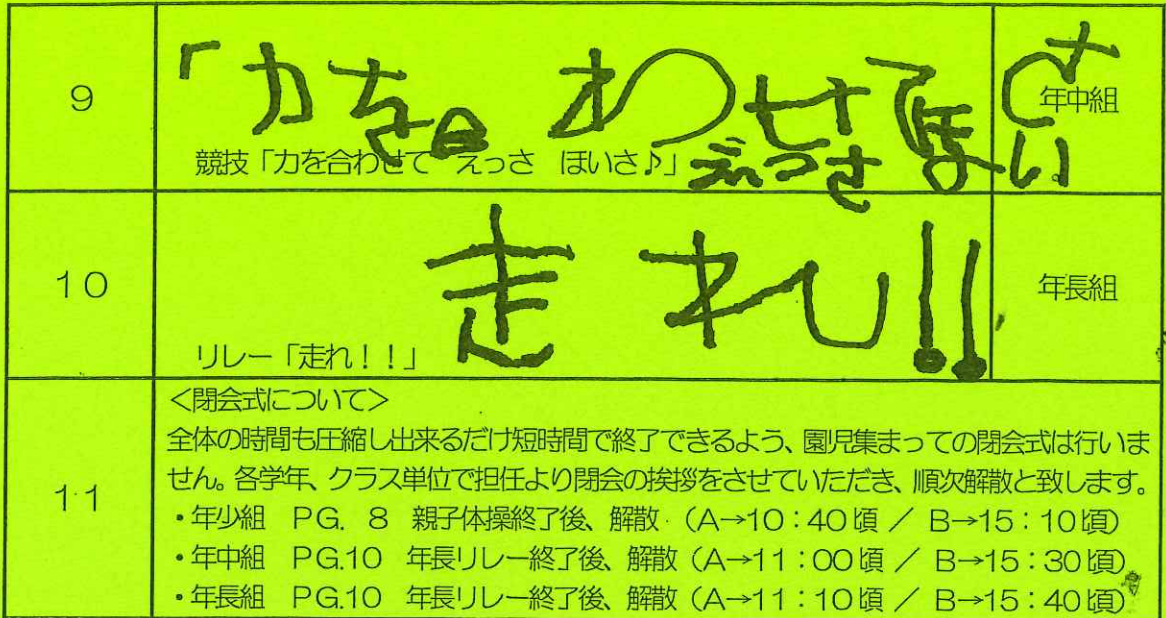 9
「力を合わせて
えっさ ほいさ
競技「力を合わせて えっさ ほいさ♪」
年中組
10
走れ!!
リレー「走れ!!」
年長組
11
<閉会式について>
全体の時間も圧縮し出来るだけ短時間で終了できるよう、園児集まっての閉会式は行いま
せん。各学年、クラス単位で担任より閉会の挨拶をさせていただき、順次解散と致します。
・年少組 PG. 8 親子体操終了後、解散 (A→10:40頃 / B→15:10頃)
・年中組 PG.10 年長リレー終了後、解散 (A→11:00頃 / B→15:30頃)
・年長組 PG.10 年長リレー終了後、解散 (A→11:10頃 / B→15:40頃)